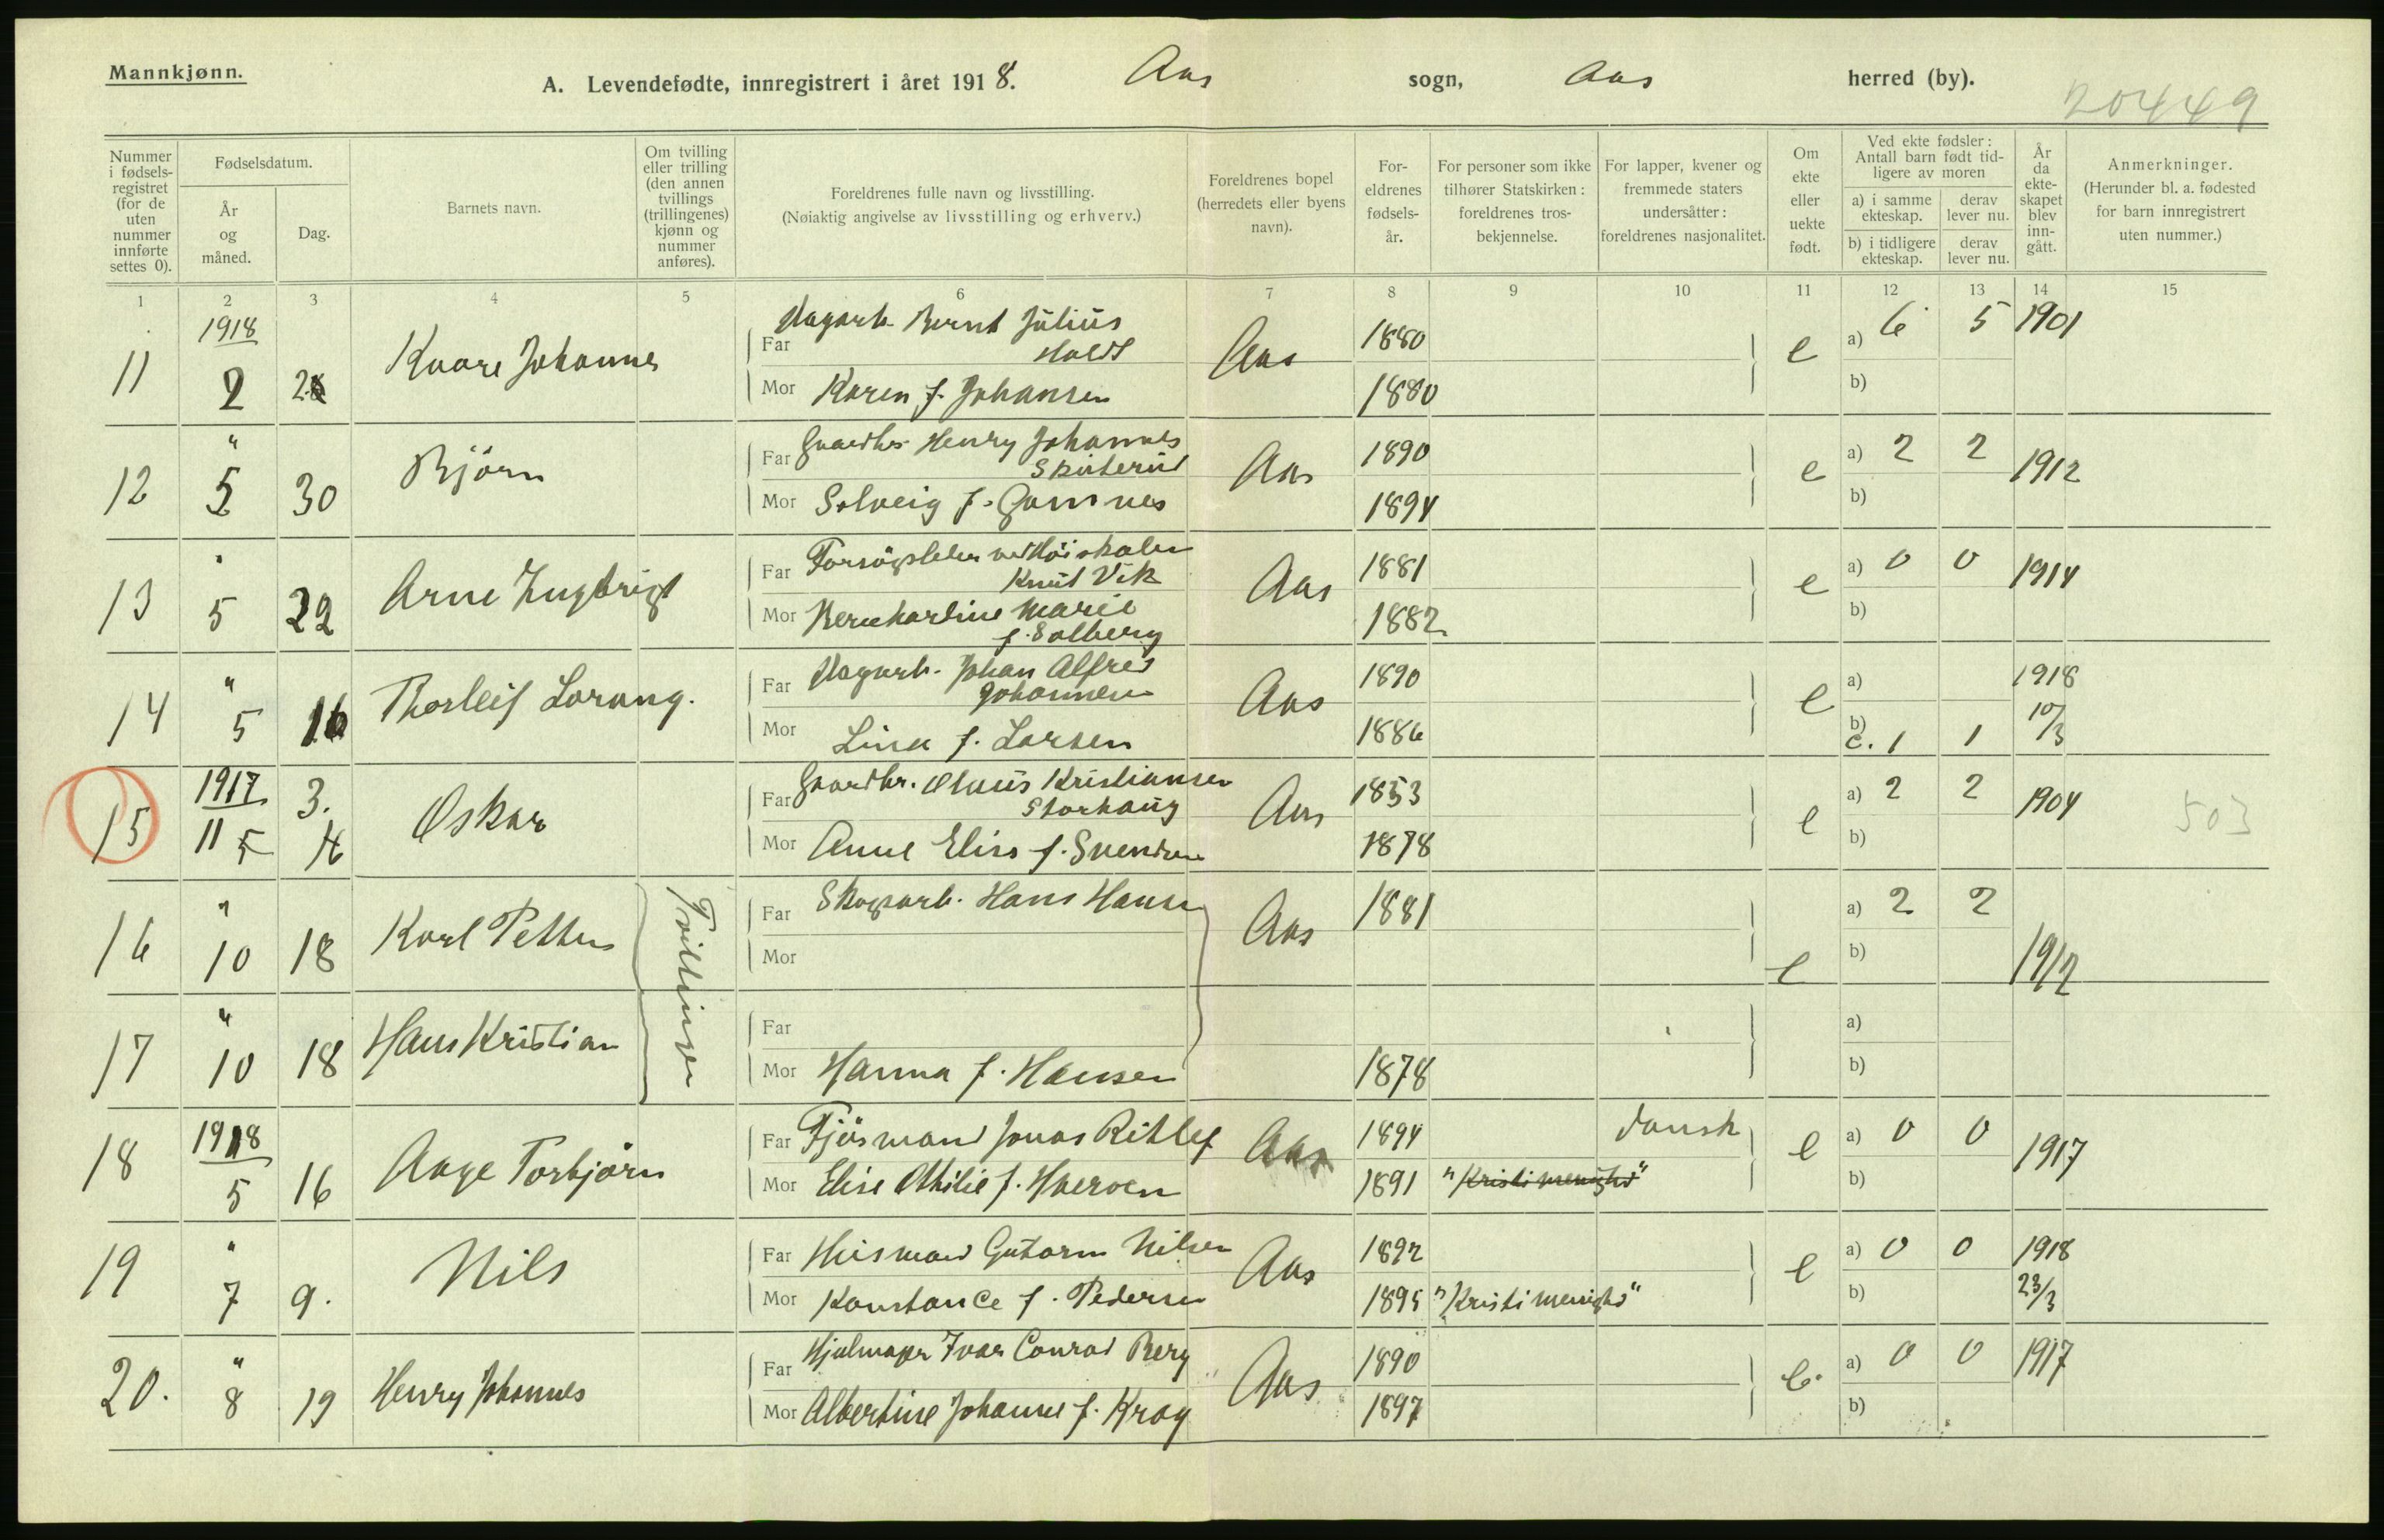 Mannkjønn.
A. Levendefødte, innregistrert i året 1918. Aas sogn, Aas herred (by).
20449
Nummer i fødselsregistret (for de uten nummer innførte settes 0).
Fødselsdatum.
År og måned.
Dag.
Barnets navn.
Om tvilling eller trilling (den annen tvillings (trillingenes) kjønn og nummer anføres).
Foreldrenes fulle navn og livsstilling.
(Nøiaktig angivelse av livsstilling og erhverv.)
Foreldrenes bopel (herredets eller byens navn).
Foreldrenes fødselsår.
For personer som ikke tilhører Statskirken: foreldrenes trosbekjennelse.
For lapper, kvener og fremmede staters undersåtter: foreldrenes nasjonalitet.
Om ekte eller uekte født.
Ved ekte fødsler: Antall barn født tidligere av moren
a) i samme ekteskap.
derav lever nu.
b) i tidligere ekteskap.
derav lever nu.
År da ekteskapet blev inngått.
Anmerkninger.
(Herunder bl. a. fødested for barn innregistrert uten nummer.)
1 2 3 4 5 6 7 8 9 10 11 12 13 14 15
1918
11 2 Kaare Johannes
Far Dagarb. Bernt Julius
Aas 1880 e a) 6 5 1901
Mor Karen f. Johansen 1880 b)
12 " 5 30 Bjørn
Far Gaardbr. Henry Johannes
Skuterud Aas 1890 e a) 2 2 1912
Mor Solveig f. 1894 b)
13 5 22 Arne Ingbrigt
Far Forsøgsleder ved Höiskolen
Knut Vik Aas 1881 e a) 0 0 1914
Mor Bernhardine Marie
f. Solberg 1882 b)
14 " 5 16 Thorleif Lorang.
Far Dagarb. Johan Alfred
Johannesen Aas 1890 e a) 1918
Mor Lina f. Larsen 1886 b) c. 1 1 10/3
1917
15 11 5 3. Oskar
Far Gaardbr. Olaus Kristiansen
Storhaug Aas 1853 e a) 2 2 1904 503
Mor Anne Elise f. Svendsen 1878 b)
16 " 10 18 Karl Petter Tvillinger
Far Skogsarb. Hans Hansen Aas 1881 e a) 2 2 1912
Mor b)
17 " 10 18 Hans Kristian
Far a)
Mor Hanna f. Hansen 1878 b)
1918
18 5 16 Aage Torbjørn
Far Fjøsmand Jonas Aas 1894 dansk e a) 0 0 1917
Mor Elise Othilie f. 1891 "Kristi menighd" b)
19 " 7 9. Nils
Far Husmand Gutorm Nilsen Aas 1892 e a) 0 0 1918
Mor Konstance f. Pedersen 1895 "Kristi menighd" b) 23/3
20. " 8 19 Henry Johannes
Far Hjulmager Ivar Conrad Berg Aas 1890 e. a) 0 0 1917
Mor Albertine Johanne f. Krog 1897 b)